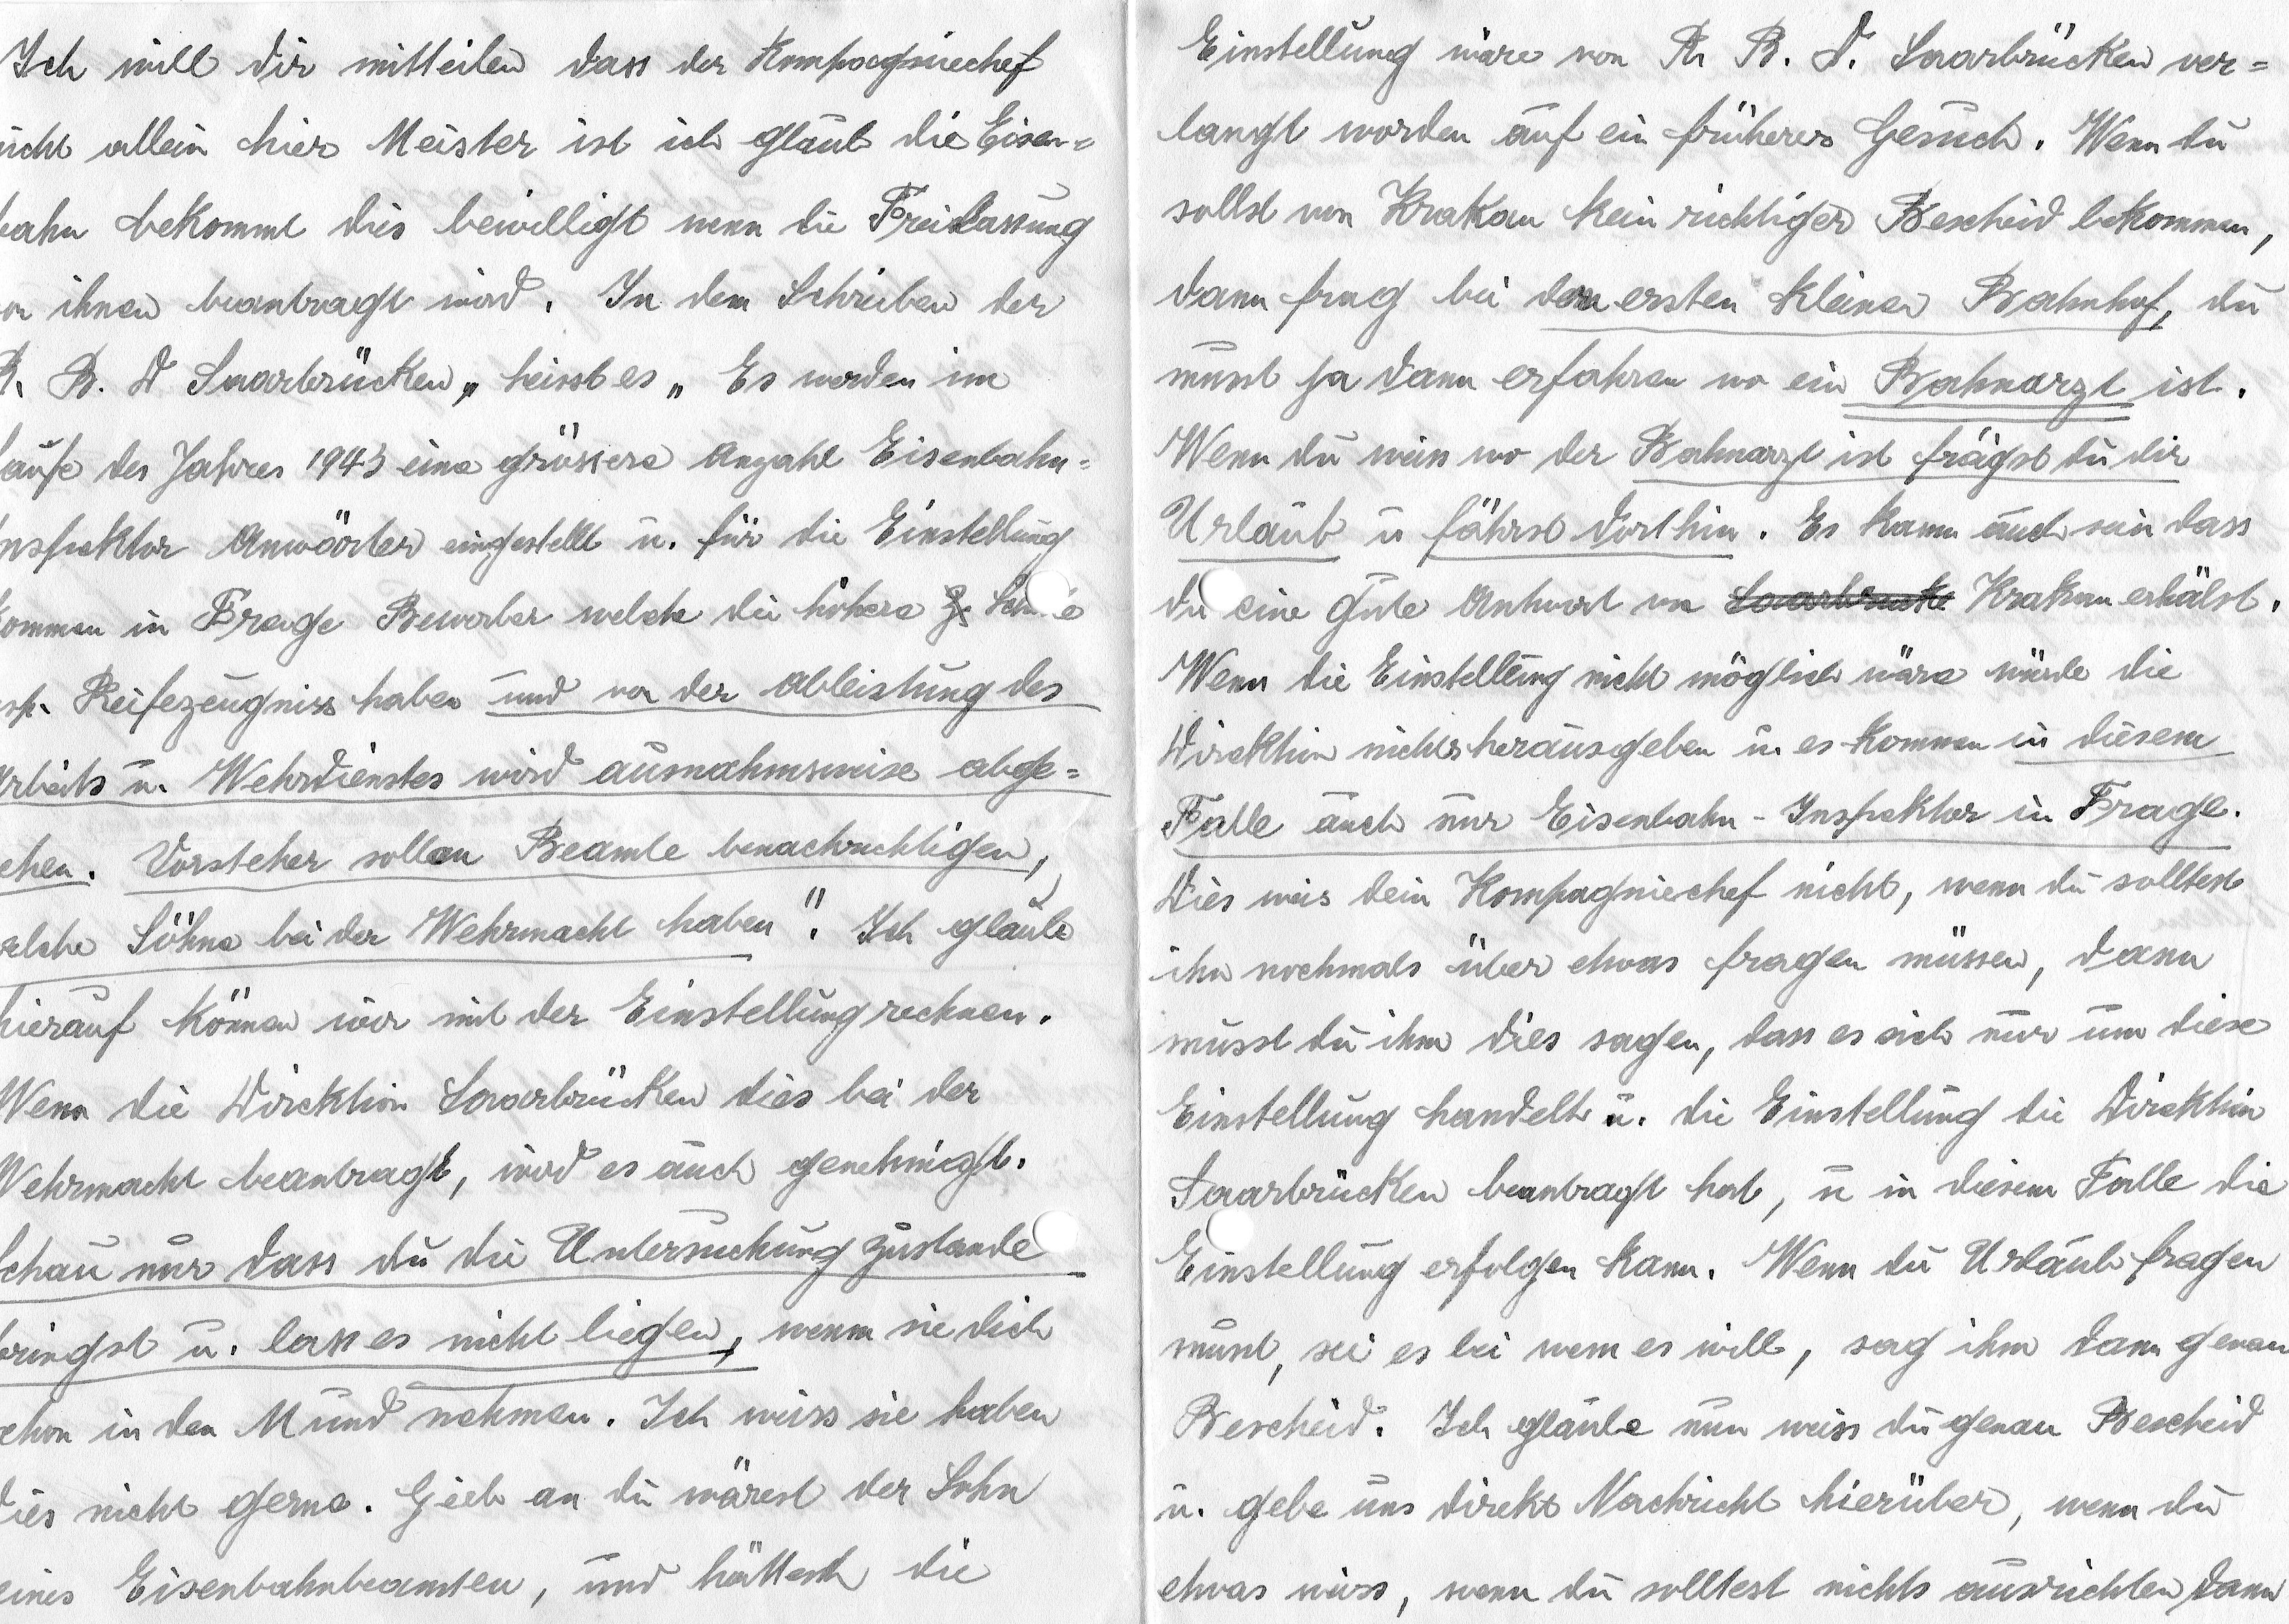 Ich will dir mitteilen dass der Kompagniechef
nicht allein hier Meister ist ich glaub die Eisen=
bahn bekommt dies bewilligt wenn die Freilassung
von ihnen beantragt wird. In dem Schreiben der
R. B. D Saarbrücken „ heisst es „ Es werden im
Laufe des Jahres 1943 eine grössere Anzahl Eisenbahn=
inspektor Anwärter eingestellt u. für die Einstellung
kommen in Frage Bewerber welche die höhere Schule
resp. Reifezeugniss haben und von der Ableistung des
Arbeits u. Wehrdienstes wird ausnahmsweise abge=
sehen. Vorsteher sollen Beamte benachrichtigen,
welche Söhne bei der Wehrmacht haben". Ich glaube
hierauf können wir mit der Einstellung rechnen.
Wenn die Direktion Saarbrücken dies bei der
Wehrmacht beantragt, wird es auch genehmigt.
Schau nur dass du die Untersuchung zustande
bringst u. lass es nicht liegen, wenn sie dich
schon in den Mund nehmen. Ich weiss sie haben
dies nicht gerne. Gieb an du wärest der Sohn
eines Eisenbahnbeamten, und hättest die
Einstellung wäre von R. B. D. Saarbrücken ver=
langt worden auf ein früheres Gesuch. Wenn du
sollst von Krakau kein richtiger Bescheid bekommen,
dann frag bei dem ersten kleinen Bahnhof, du
musst ja dann erfahren wo ein Bahnarzt ist.
Wenn du weis wo der Bahnarzt ist frägst du dir
Urlaub u fährst dorthin. Es kann auch sein dass
du eine gute Antwort von Saarbrücke Krakau erhälst.
Wenn die Einstellung nicht möglich wäre würde die
Direktion nichts herausgeben u. es kommen in diesem
Falle auch nur Eisenbahn-Inspektor in Frage.
Dies weis dein Kompagniechef nicht, wenn du solltest
ihn nochmals über etwas fragen müssen, dann
musst du ihm dies sagen, dass es sich nur um diese
Einstellung handelt u. die Einstellung die Direktion
Saarbrücken beantragt hat, u in diesem Falle die
Einstellung erfolgen kann. Wenn du Urlaub fragen
musst, sei es bei wem es will, sag ihm dann genau
Bescheid. Ich glaube nun weiss du genau Bescheid
u. gebe uns direkt Nachricht hierüber, wenn du
etwas weiss, wenn du solltest nichts ausrichten dann